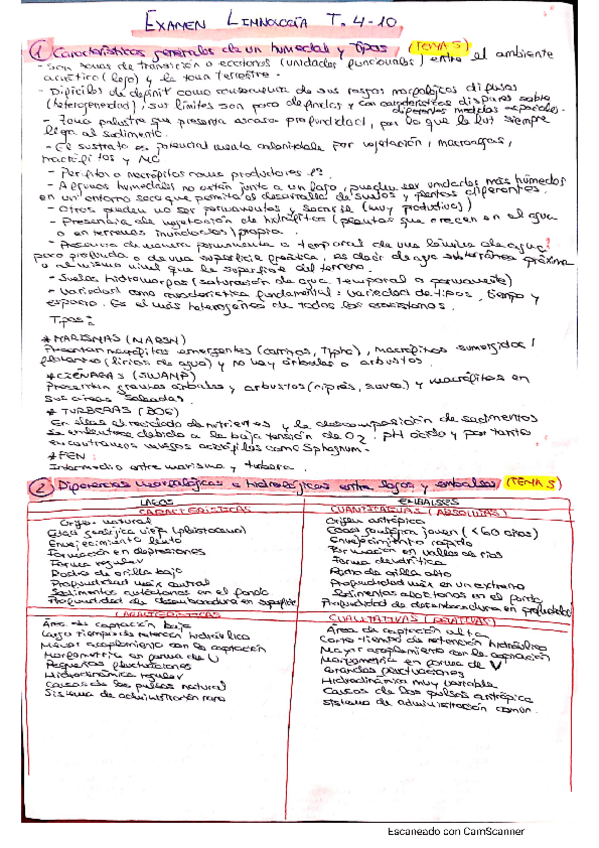 EXAMEN LIMNOLOGÍA T. 4-10
① Características generales de un humedal y Tipos (TEMA 5)
- Son zonas de transición o ecotonos (unidades funcionales) entre el ambiente
acuático (lago) y la zona terrestre.
- Difíciles de definir como consecuencia de sus rasgos morfológicos difusos
(heterogeneidad), sus límites son poco definidos y con características dispares sobre
diferentes modelos espaciales.
- Zona palustre que presenta escasa profundidad, por lo que la luz siempre
llega al sedimento.
- El sustrato es potencialmente colonizable por vegetación, macroalgas,
macrófitos y
- Perifiton o macrófitos como productores 1º.
- Algunos humedales no están junto a un lago, pueden ser unidades más húmedas
en un entorno seco que permita el desarrollo de suelos y plantas diferentes.
- Otros pueden no ser permanentes y secarse (muy productivos)
- Presencia de vegetación de hidrófitos (plantas que crecen en el agua
o en terrenos inundados) propia.
- Presencia de manera permanente o temporal de una lámina de agua
poco profunda o de una superficie freática, es decir de agua subterránea próxima
o al mismo nivel que la superficie del terreno.
- Suelos hidromorfos (saturación de agua temporal o permanente)
- Variedad como característica fundamental: variedad de tipos, tiempo y
espacio. Es el más heterogéneo de todos los ecosistemas.
Tipos:
* MARISMAS (MARSH)
Presentan macrófitos emergentes (carrizos, Typha), macrófitos sumergidos /
flotantes (lirios de agua) y no hay árboles o arbustos.
* CIÉNAGAS (SWAMP)
Presentan grandes árboles y arbustos (ciprés, sauce) y macrófitos en
sus áreas
* TURBERAS (BOG)
En ellas el reciclado de nutrientes y la descomposición de sedimentos
se enlentece debido a la baja tensión de O2. pH ácido y por tanto
encontramos musgos acidófilos como Sphagnum.
* FEN
Intermedio entre marisma y turbera.
② Diferencias morfológicas e hidrológicas entre lagos y embalses (TEMA 5)
LAGOS EMBALSES
CARACTERÍSTICAS CUANTITATIVAS (ABSOLUTAS)
Origen natural
Edad geológica vieja (pleistoceno)
Envejecimiento lento
Formación en depresiones
Forma regular
Ratio de orilla bajo
Profundidad máx central
Sedimentos autóctonos en el fondo
Profundidad de desembocadura en superficie
Origen antrópico
Edad geológica joven (<60 años)
Envejecimiento rápido
Formación en valles de ríos
Forma dendrítica
Ratio de orilla alto
Profundidad máx en un extremo
Sedimentos alóctonos en el fondo
Profundidad de desembocadura en profundidad
CARACTERÍSTICAS CUALITATIVAS (RELATIVAS)
Área de captación baja
Largo tiempo de retención hidráulico
Menor acoplamiento con la captación
Morfometría en forma de U
Pequeñas fluctuaciones
Hidrodinámica regular
Causas de los pulsos natural
Sistema de administración raro
Área de captación alta
Corto tiempo de retención hidráulico
Mayor acoplamiento con la captación
Morfometría en forma de V
Grandes fluctuaciones
Hidrodinámica muy variable
Causas de los pulsos antrópica
Sistema de administración común.
Escaneado con CamScanner